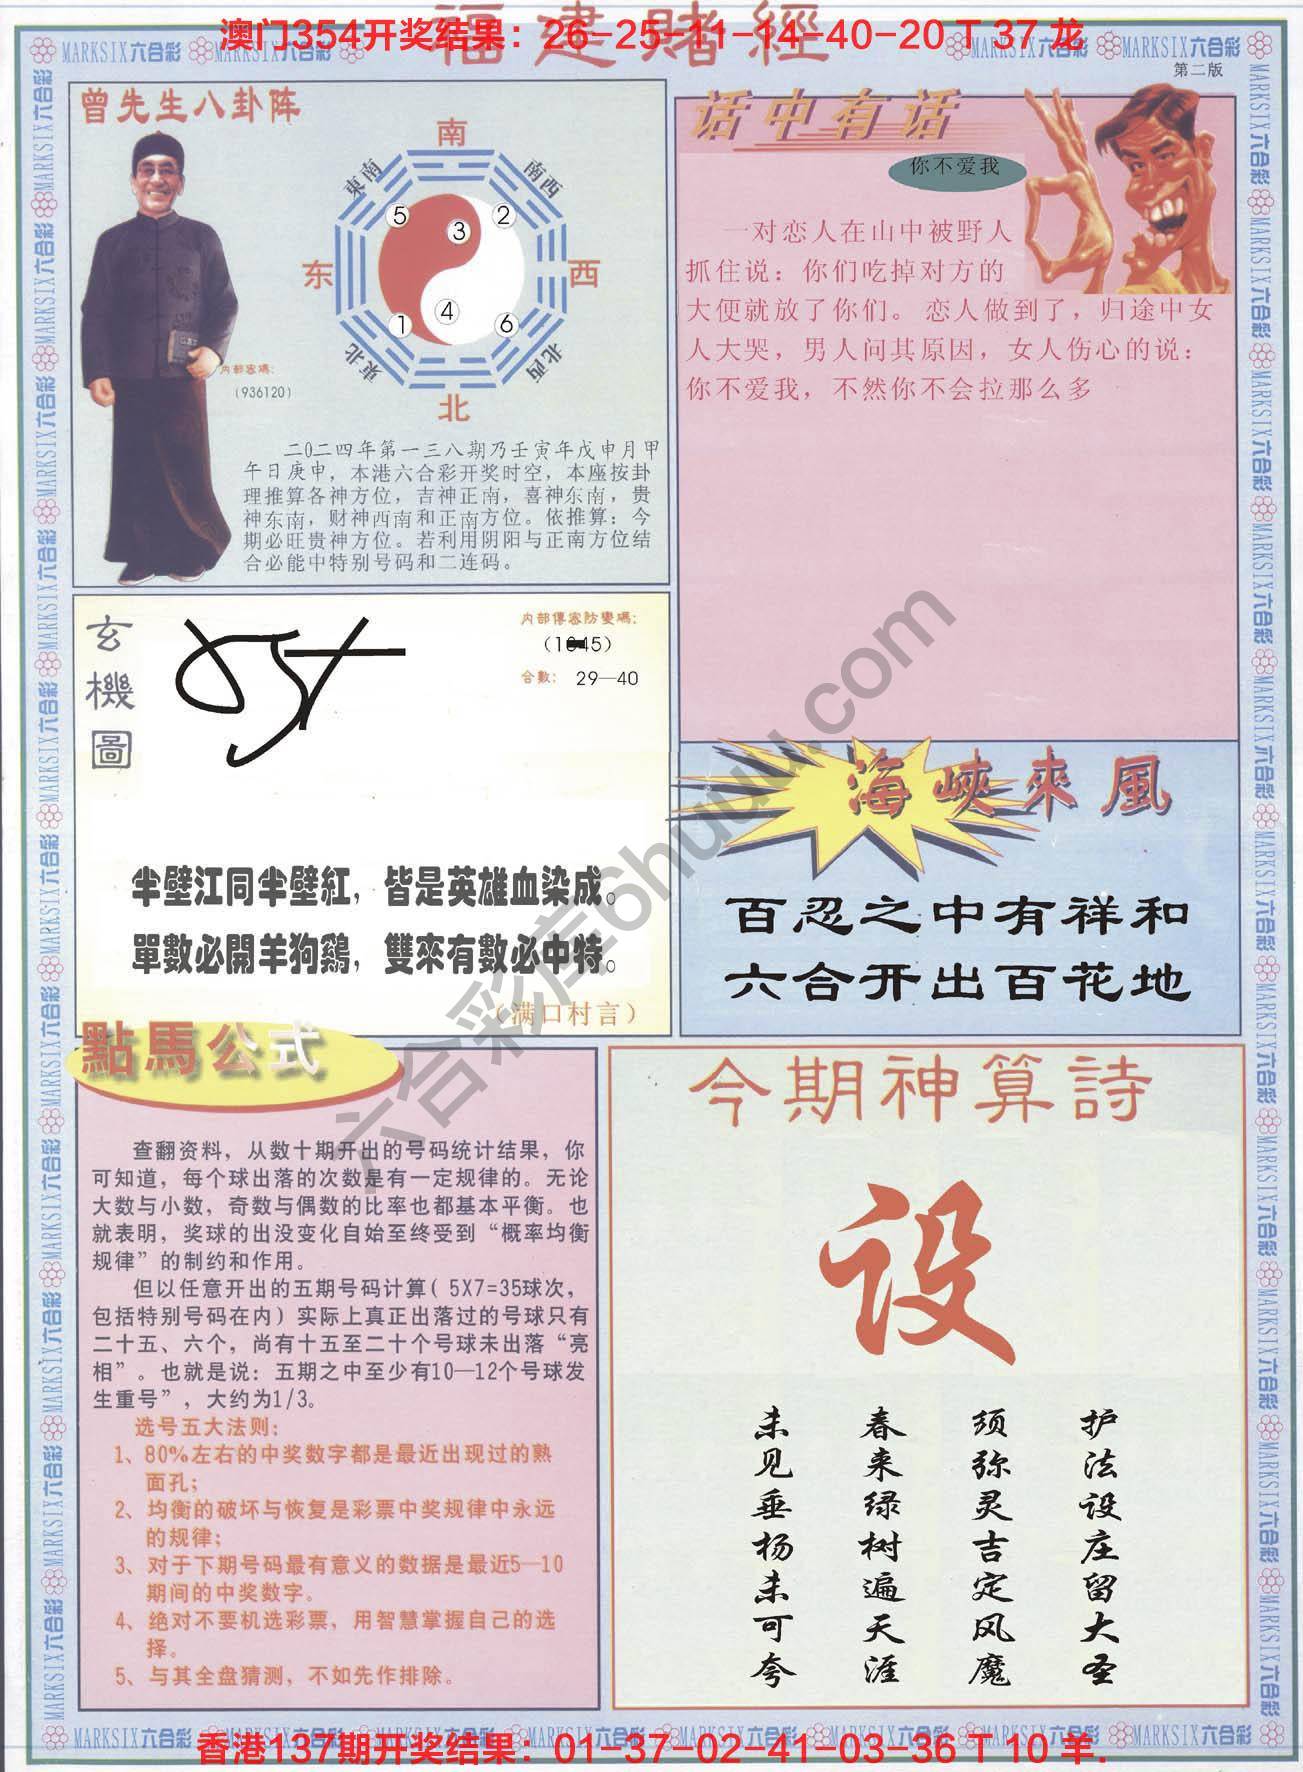 福建賭經
澳门354开奖结果：26-25-11-14-40-20 T 37 龙
MARKSIX六合彩
第二版
曾先生八卦阵
南
東南
南西
5
3
2
东
西
4
1
6
東北
北西
北
内部密碼：
（936120）
二〇二四年第一三八期乃壬寅年戊申月甲
午日庚申，本港六合彩开奖时空，本座按卦
理推算各神方位，吉神正南，喜神东南，贵
神东南，财神西南和正南方位。依推算：今
期必旺贵神方位。若利用阴阳与正南方位结
合必能中特别号码和二连码。
话中有话
你不爱我
一对恋人在山中被野人
抓住说：你们吃掉对方的
大便就放了你们。恋人做到了，归途中女
人大哭，男人问其原因，女人伤心的说：
你不爱我，不然你不会拉那么多
玄機圖
内部傳密防變碼：
合數：29—40
半壁江同半壁紅，皆是英雄血染成。
單數必開羊狗鷄，雙來有數必中特。
（满口村言）
海峽來風
百忍之中有祥和
六合开出百花地
點馬公式
查翻资料，从数十期开出的号码统计结果，你
可知道，每个球出落的次数是有一定规律的。无论
大数与小数，奇数与偶数的比率也都基本平衡。也
就表明，奖球的出没变化自始至终受到“概率均衡
规律”的制约和作用。
但以任意开出的五期号码计算（5X7=35球次，
包括特别号码在内）实际上真正出落过的号球只有
二十五、六个，尚有十五至二十个号球未出落“亮
相”。也就是说：五期之中至少有10—12个号球发
生重号”，大约为1/3。
选号五大法则：
1、80%左右的中奖数字都是最近出现过的熟
面孔；
2、均衡的破坏与恢复是彩票中奖规律中永远
的规律；
3、对于下期号码最有意义的数据是最近5—10
期间的中奖数字。
4、绝对不要机选彩票，用智慧掌握自己的选
择。
5、与其全盘猜测，不如先作排除。
今期神算詩
设
护法设庄留大圣
须弥灵吉定风魔
春来绿树遍天涯
未见垂杨未可夸
六合彩库6huuu.com
香港137期开奖结果：01-37-02-41-03-36 T 10 羊.